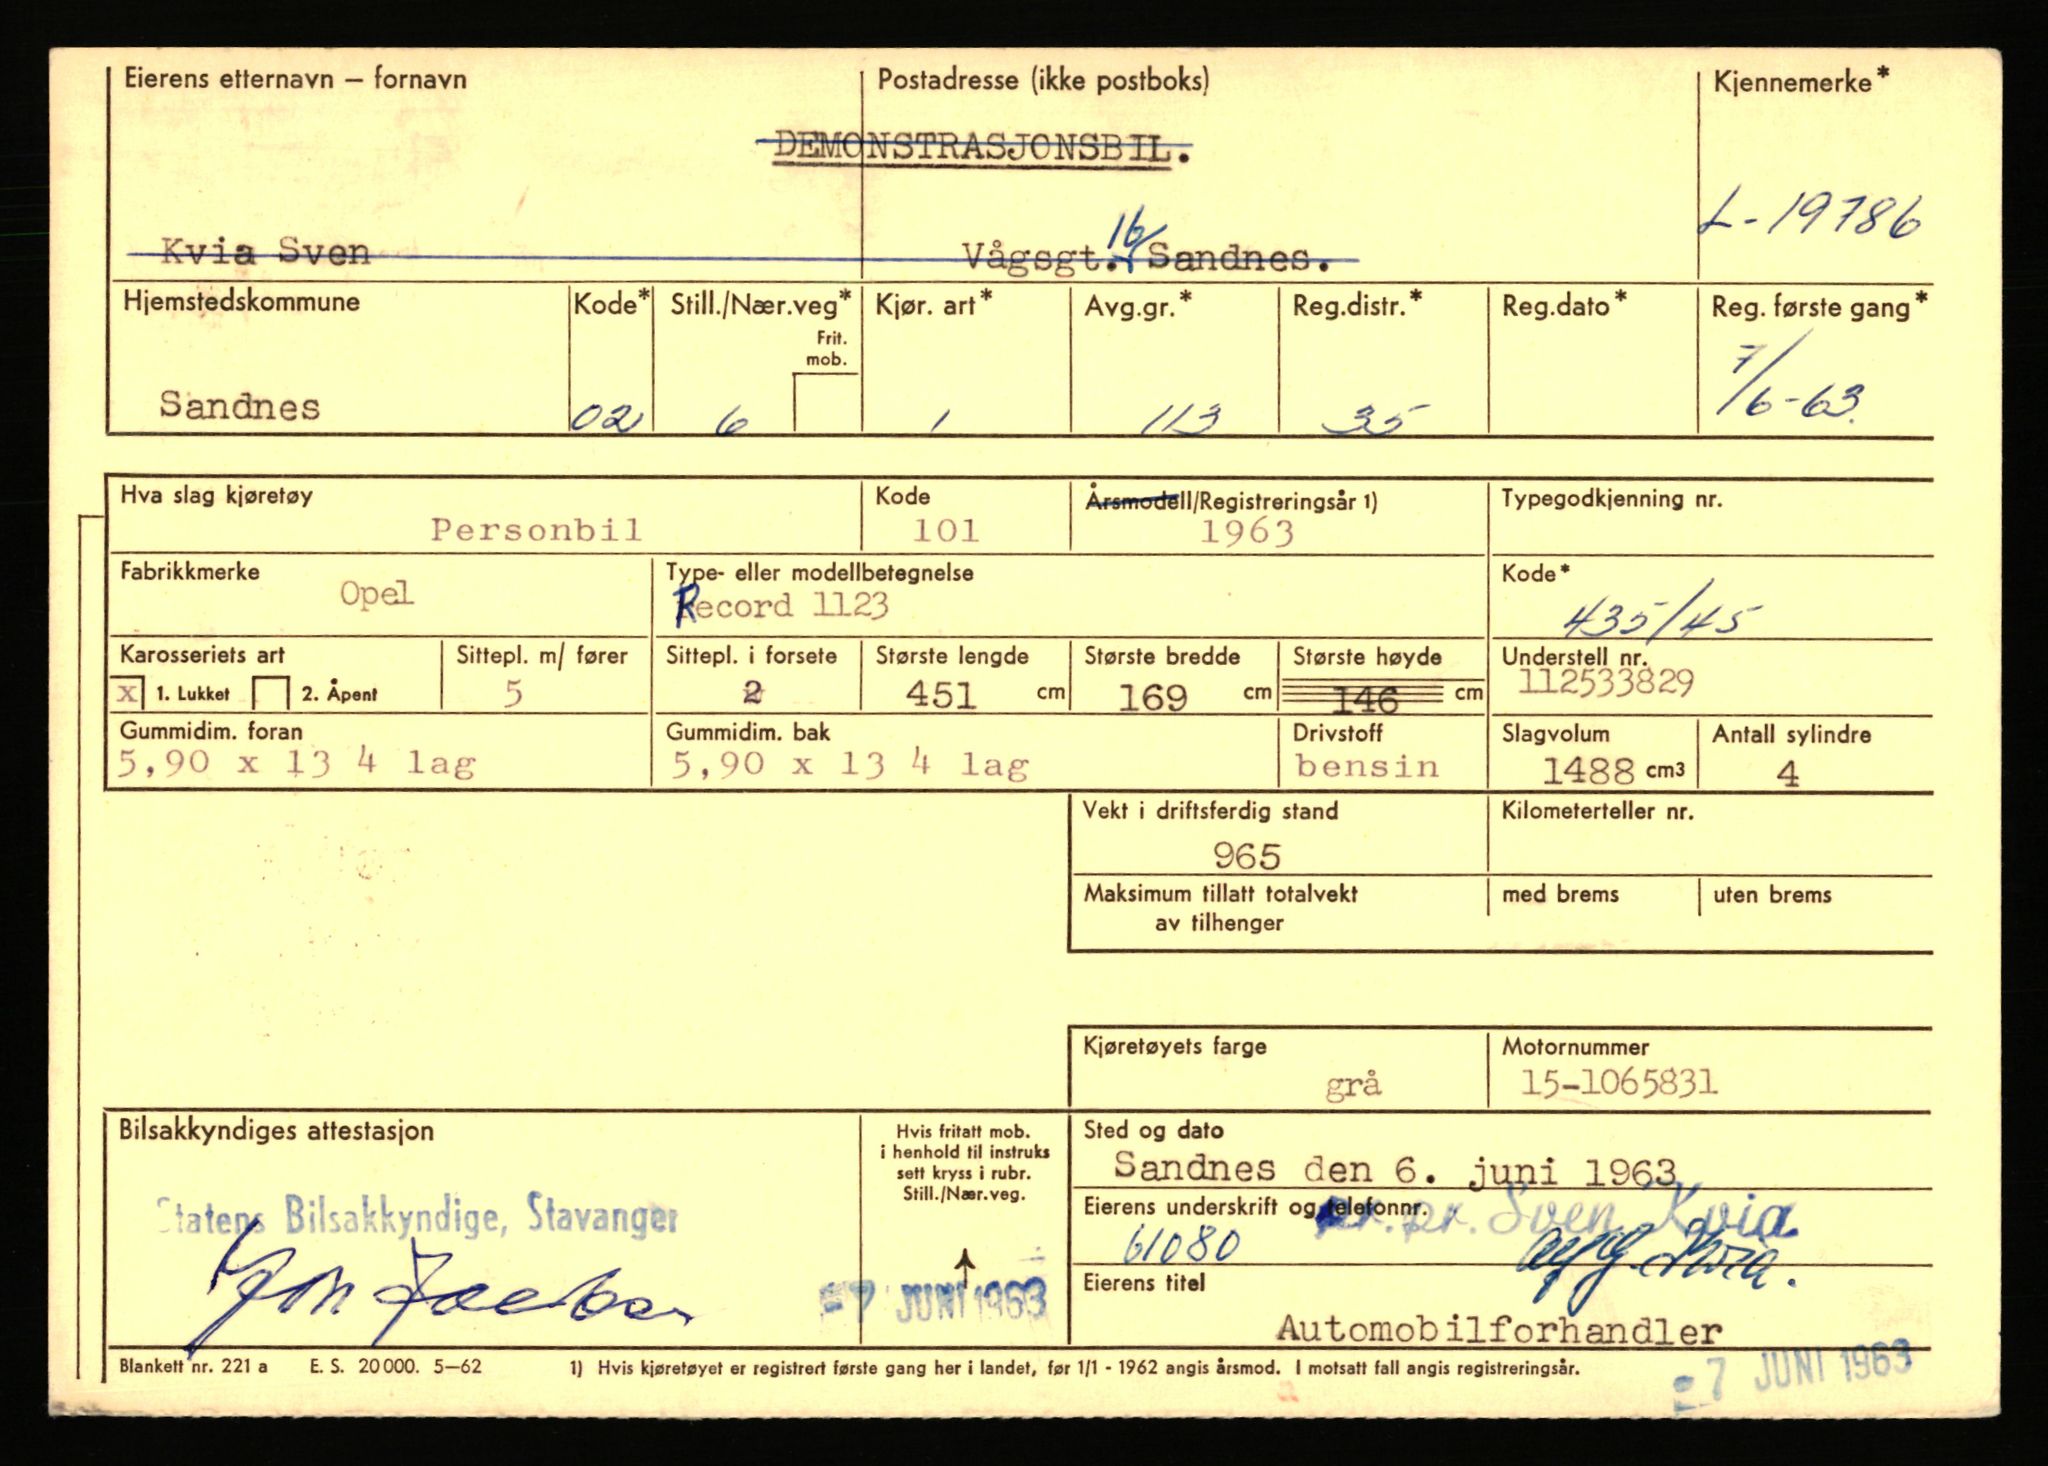 Eierens etternavn – fornavn Postadresse (ikke postboks) Kjennemerke*
DEMONSTRASJONSBIL.
L-19786
Kvia Sven Vågsgt. 16 Sandnes.
Hjemstedskommune Kode* Still./Nær.veg* Kjør. art* Avg.gr.* Reg.distr.* Reg.dato* Reg. første gang*
Frit.
mob.
Sandnes 02 6 1 113 35 7/6-63.
Hva slag kjøretøy Kode Årsmodell/Registreringsår 1) Typegodkjenning nr.
Personbil 101 1963
Fabrikkmerke Type- eller modellbetegnelse Kode*
Opel Record 1123 435/45
Karosseriets art Sittepl. m/ fører Sittepl. i forsete Største lengde Største bredde Største høyde Understell nr.
x 1. Lukket 2. Åpent 5 2 451 cm 169 cm 146 cm 112533829
Gummidim. foran Gummidim. bak Drivstoff Slagvolum Antall sylindre
5,90 x 13 4 lag 5,90 x 13 4 lag bensin 1488 cm3 4
Vekt i driftsferdig stand Kilometerteller nr.
965
Maksimum tillatt totalvekt med brems uten brems
av tilhenger
Kjøretøyets farge Motornummer
grå 15-1065831
Bilsakkyndiges attestasjon Hvis fritatt mob. Sted og dato
i henhold til instruks
sett kryss i rubr.
Still./Nær.veg.
Sandnes den 6. juni 1963
Statens Bilsakkyndige, Stavanger
Eierens underskrift og telefonnr. pr. pr. Sven Kvia
61080
-7 JUNI 1963
Eierens titel
Automobilforhandler
Blankett nr. 221 a E. S. 20 000. 5–62 1) Hvis kjøretøyet er registrert første gang her i landet, før 1/1 - 1962 angis årsmod. I motsatt fall angis registreringsår.
-7 JUNI 1963